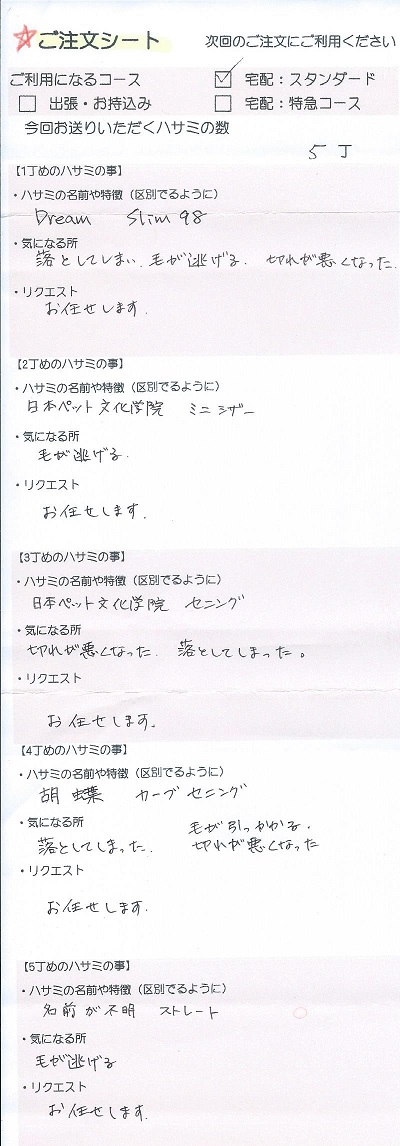 ご注文シート 次回のご注文にご利用ください
ご利用になるコース 宅配：スタンダード
出張・お持込み 宅配：特急コース
今回お送りいただくハサミの数
5丁
【1丁めのハサミの事】
・ハサミの名前や特徴（区別でるように）
Dream Slim 98
・気になる所
落としてしまい、毛が逃げる. 切れが悪くなった.
・リクエスト
お任せします.
【2丁めのハサミの事】
・ハサミの名前や特徴（区別でるように）
日本ペット文化学院 ミニシザー
・気になる所
毛が逃げる.
・リクエスト
お任せします.
【3丁めのハサミの事】
・ハサミの名前や特徴（区別でるように）
日本ペット文化学院 セニング
・気になる所
切れが悪くなった. 落としてしまった。
・リクエスト
お任せします。
【4丁めのハサミの事】
・ハサミの名前や特徴（区別でるように）
胡蝶 カーブセニング
・気になる所 毛が引っかかる.
落としてしまった. 切れが悪くなった
・リクエスト
お任せします.
【5丁めのハサミの事】
・ハサミの名前や特徴（区別でるように）
名前が不明 ストレート
・気になる所
毛が逃げる
・リクエスト
お任せします.